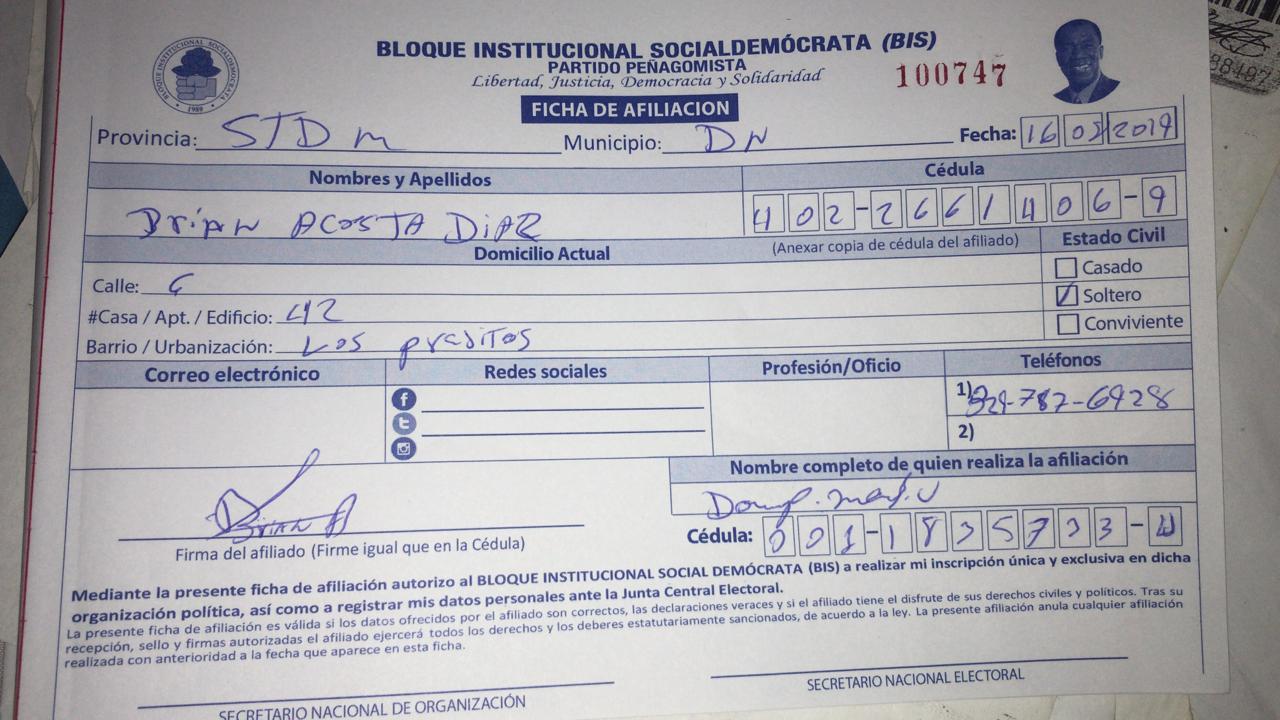 BLOQUE INSTITUCIONAL SOCIALDEMÓCRATA (BIS)
PARTIDO PEÑAGOMISTA
Libertad, Justicia, Democracia y Solidaridad
100747
BLOQUE INSTITUCIONAL SOCIALDEMOCRATA
1989
FICHA DE AFILIACION
Provincia: STD m Municipio: DN Fecha: 16 03 2019
Nombres y Apellidos Cédula
Brian ACOSTA DiAZ 402-2661406-9
(Anexar copia de cédula del afiliado)
Domicilio Actual Estado Civil
Calle: 6 Casado
#Casa / Apt. / Edificio: 42 Soltero
Barrio / Urbanización: Los praditos Conviviente
Correo electrónico Redes sociales Profesión/Oficio Teléfonos
1) 829-787-6928
2)
Nombre completo de quien realiza la afiliación
Brian A
Firma del afiliado (Firme igual que en la Cédula) Cédula: 001-1835733-4
Mediante la presente ficha de afiliación autorizo al BLOQUE INSTITUCIONAL SOCIAL DEMÓCRATA (BIS) a realizar mi inscripción única y exclusiva en dicha
organización política, así como a registrar mis datos personales ante la Junta Central Electoral.
La presente ficha de afiliación es válida si los datos ofrecidos por el afiliado son correctos, las declaraciones veraces y si el afiliado tiene el disfrute de sus derechos civiles y políticos. Tras su
recepción, sello y firmas autorizadas el afiliado ejercerá todos los derechos y los deberes estatutariamente sancionados, de acuerdo a la ley. La presente afiliación anula cualquier afiliación
realizada con anterioridad a la fecha que aparece en esta ficha.
SECRETARIO NACIONAL DE ORGANIZACIÓN SECRETARIO NACIONAL ELECTORAL